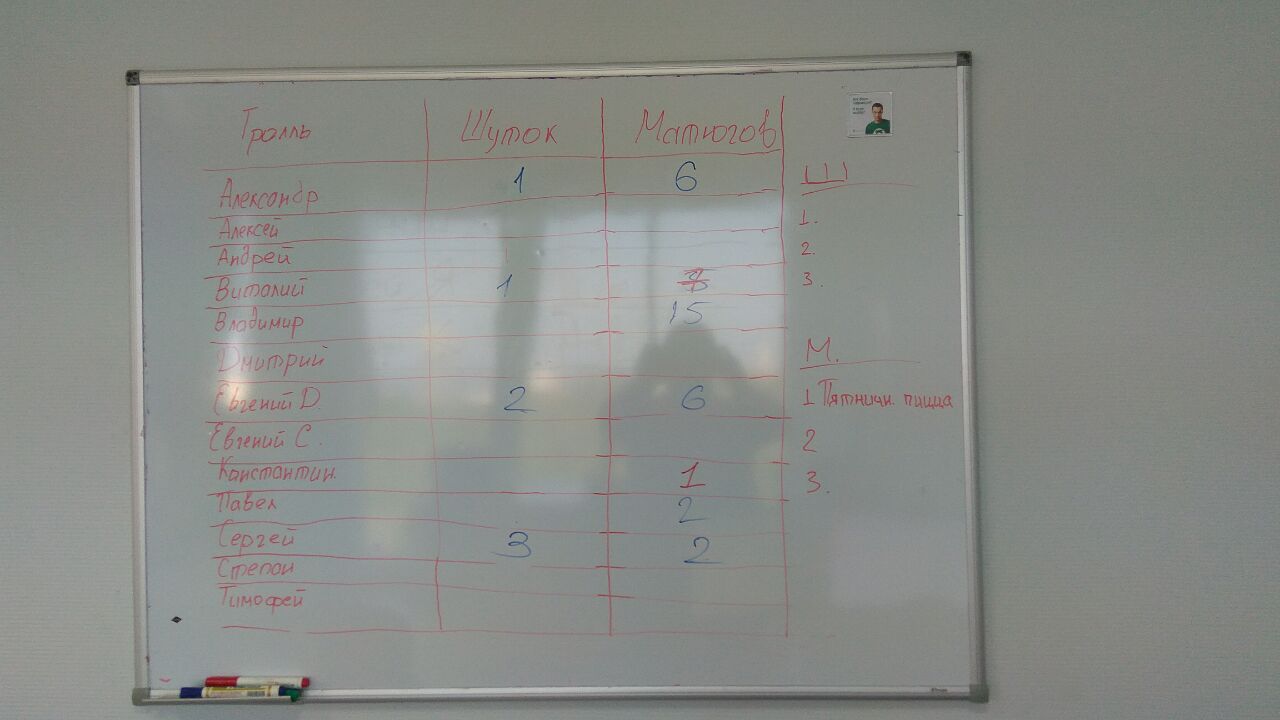 Тролль Шуток Матюгов
Александр 1 6
Ш
Алексей
1.
Андрей
2.
Виталий 1
3.
Владимир 15
Дмитрий
М.
Евгений D. 2 6
1 Пятничн. пицца
Евгений С.
2
Константин. 1
3.
Павел 2
Сергей 3 2
Степан
Тимофей